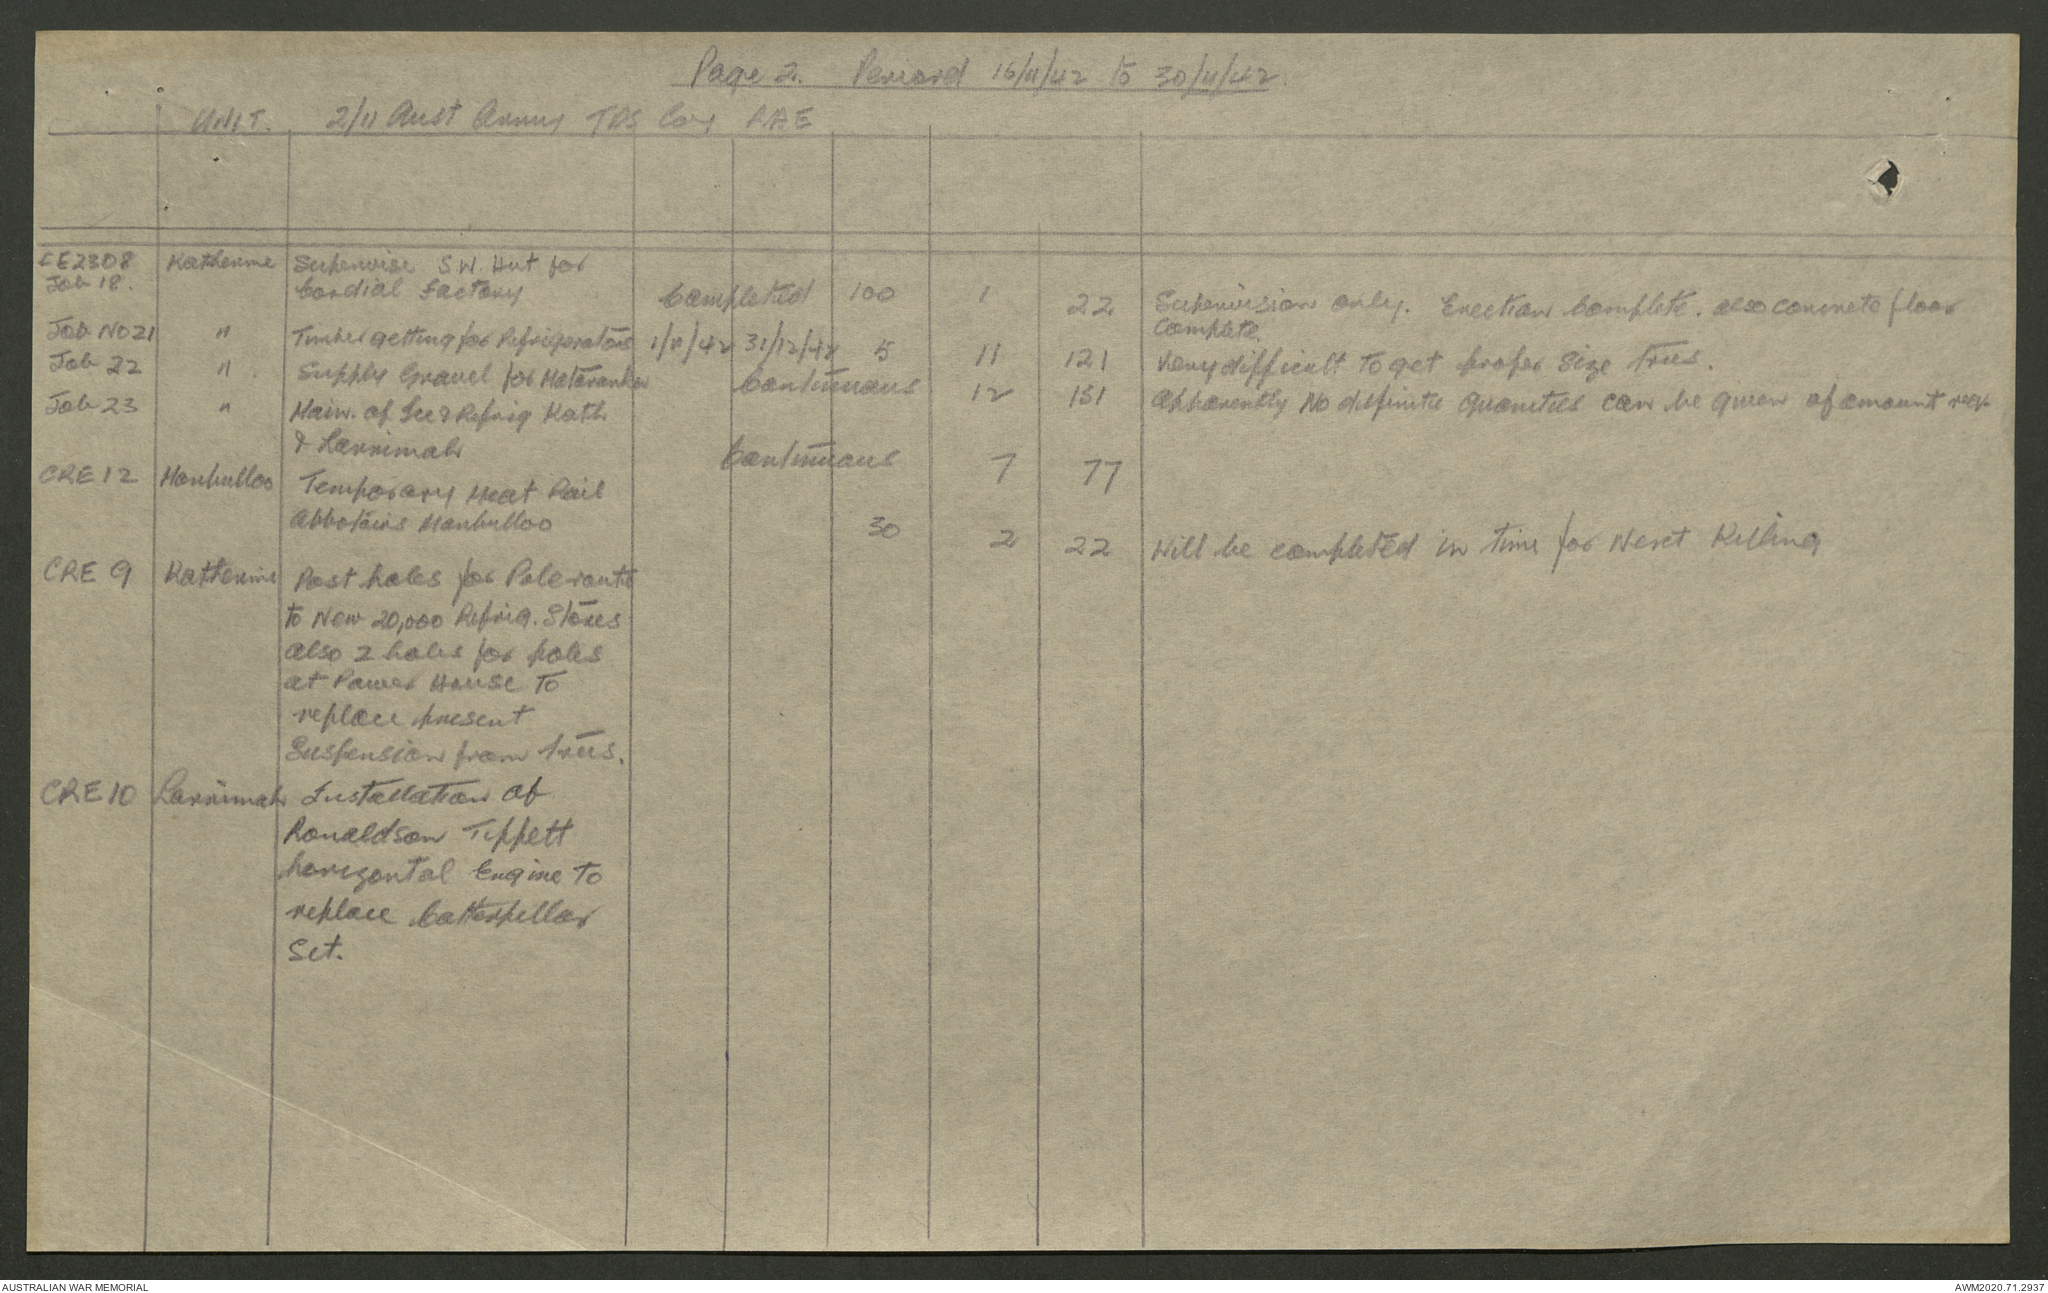 Page 2. Period 16/11/42 to 30/11/42.
UNIT. 2/11 Aust Army TPS Coy RAE
CE2308 Katherine Supervise S.W. Hut for
Job 18. Cordial Factory Completed 100 1 22 Supervision only. Erection Complete. also concrete floor
Complete.
Job No21 " Timber getting for Refrigerators 1/11/42 31/12/42 5 11 121 Very difficult to get proper size trees.
Job 22 " Supply Gravel for Mataranka Continuous 12 131 Apparently No definite quantities can be given of amount reqd
Job 23 " Main. of Ice & Refrig Kath
& Larrimah Continuous 7 77
CRE 12 Manbulloo Temporary Meat Rail
Abbotoirs Manbulloo 30 2 22 Will be completed in time for Next Killing
CRE 9 Katherine Post holes for Pole route
to New 20,000 Refrig. Stores
also 2 holes for poles
at Power House to
replace present
Suspension from trees.
CRE 10 Larrimah Installation of
Ronaldson Tippett
horizontal Engine to
replace Catterpillar
Set.
AUSTRALIAN WAR MEMORIAL AWM2020.71.2937